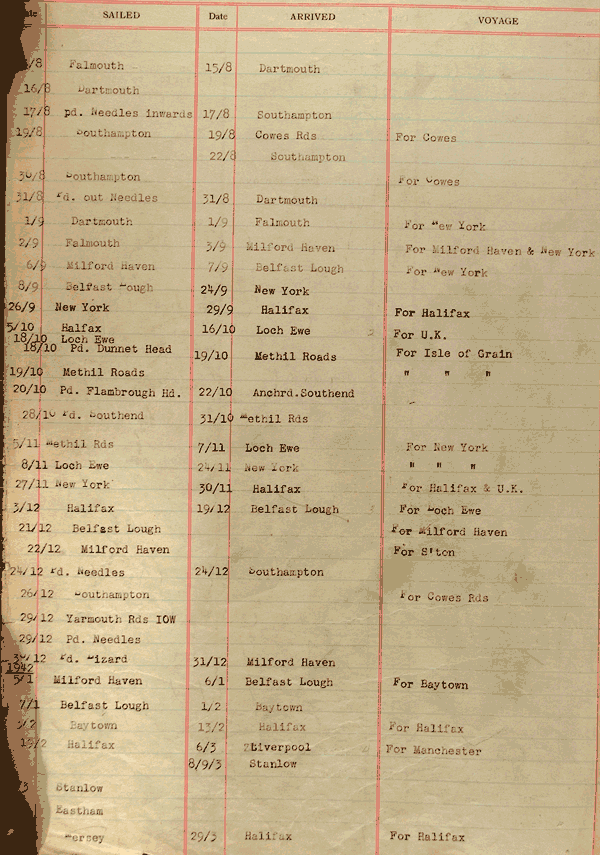 SAILED Date ARRIVED VOYAGE
/8 Falmouth 15/8 Dartmouth
16/8 Dartmouth
17/8 pd. Needles inwards 17/8 Southampton
19/8 Southampton 19/8 Cowes Rds For Cowes
22/8 Southampton
30/8 Southampton For Cowes
31/8 Pd. out Needles 31/8 Dartmouth
1/9 Dartmouth 1/9 Falmouth For New York
2/9 Falmouth 3/9 Milford Haven For Milford Haven & New York
6/9 Milford Haven 7/9 Belfast Lough For New York
8/9 Belfast Lough 24/9 New York
26/9 New York 29/9 Halifax For Halifax
5/10 Halfax 16/10 Loch Ewe For U.K.
18/10 Loch Ewe
18/10 Pd. Dunnet Head 19/10 Methil Roads For Isle of Grain
19/10 Methil Roads " " "
20/10 Pd. Flambrough Hd. 22/10 Anchrd.Southend
28/10 Pd. Southend 31/10 Methil Rds
5/11 Methil Rds 7/11 Loch Ewe For New York
8/11 Loch Ewe 24/11 New York " " "
27/11 New York 30/11 Halifax For Halifax & U.K.
3/12 Halifax 19/12 Belfast Lough For Loch Ewe
21/12 Belfast Lough For Milford Haven
22/12 Milford Haven For S'ton
24/12 Pd. Needles 24/12 Southampton
26/12 Southampton For Cowes Rds
29/12 Yarmouth Rds IOW
29/12 Pd. Needles
30/12 Pd. Lizard 31/12 Milford Haven
1942
5/1 Milford Haven 6/1 Belfast Lough For Baytown
7/1 Belfast Lough 1/2 Baytown
5/2 Baytown 13/2 Halifax For Halifax
15/2 Halifax 6/3 Liverpool For Manchester
8/9/3 Stanlow
/3 Stanlow
Eastham
Mersey 29/3 Halifax For Halifax